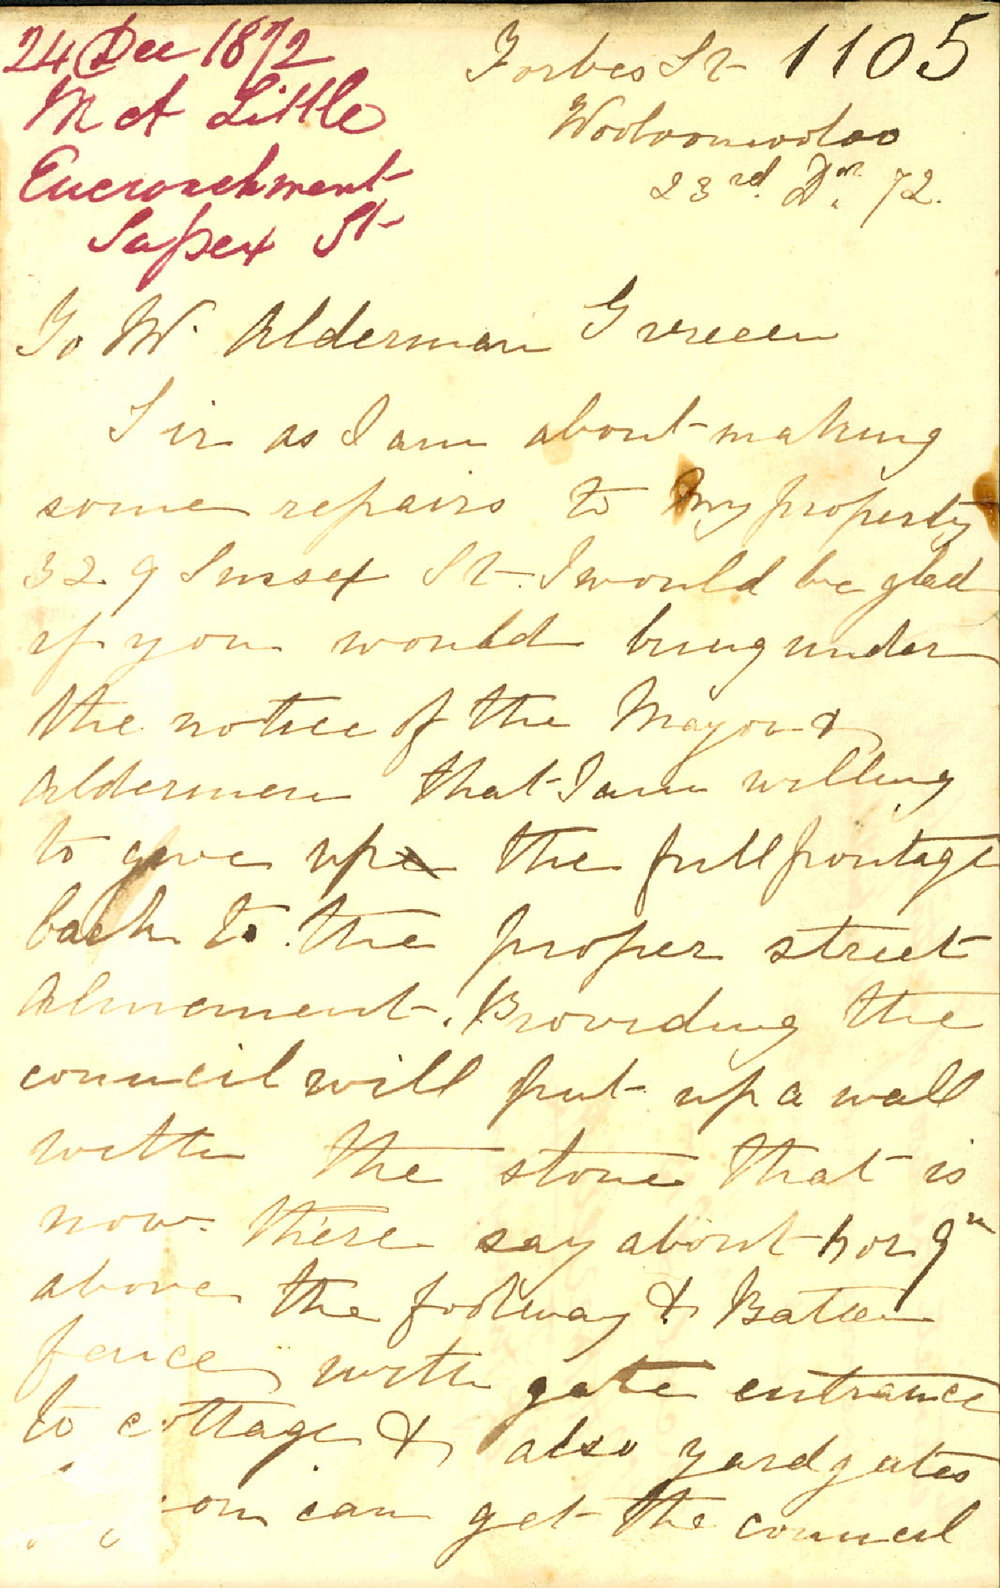 24 Dec 1872
M A Little
Encroachment
Sussex St
Forbes St 1105
Wooloomooloo
23rd. Dr. 72.
To Mr. Alderman
Sir as I am about making
some repairs to my property
329 Sussex St. I would be glad
if you would bring under
the notice of the Mayor &
Aldermen that I am willing
to give up the full frontage
back to the proper street
Alinement. Providing the
council will put up a wall
with the stone that is
now there say about or 9in
above the footway & Batten
fence with gate entrance
to cottage & also yard gates
can get the council